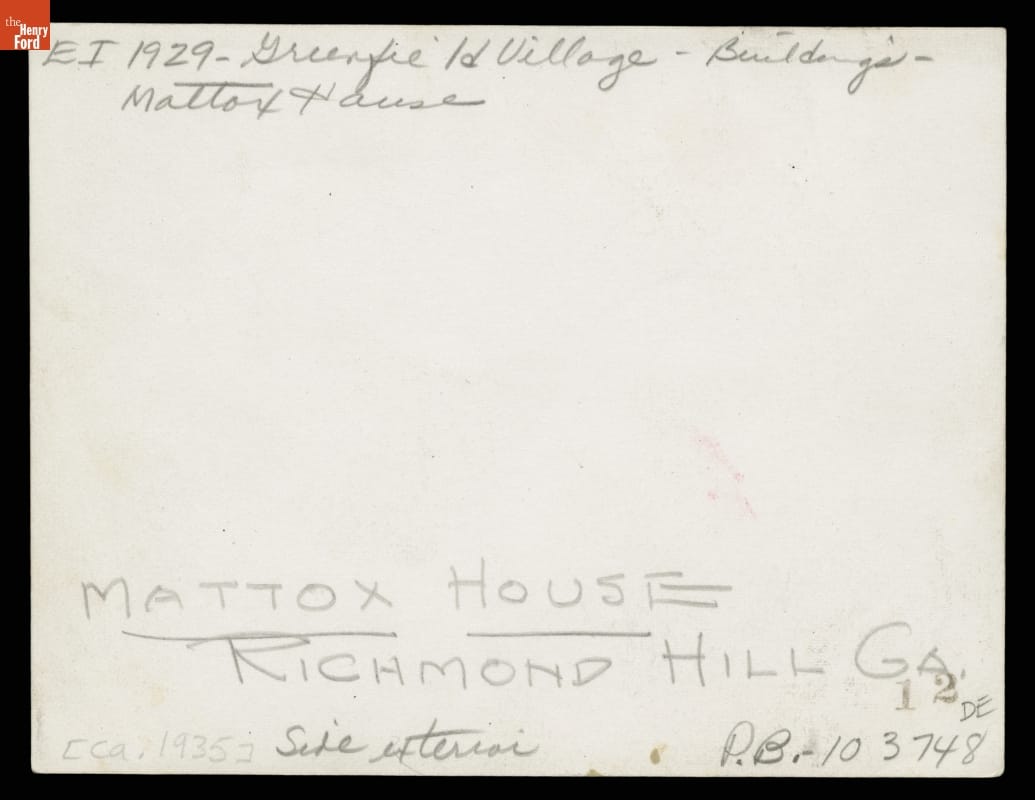 the Henry Ford
EI 1929- Greenfield Village - Buildings -
Mattox House
MATTOX HOUSE
RICHMOND HILL GA.
12
DE
[ca. 1935] Side exterior P.B.-10 3748